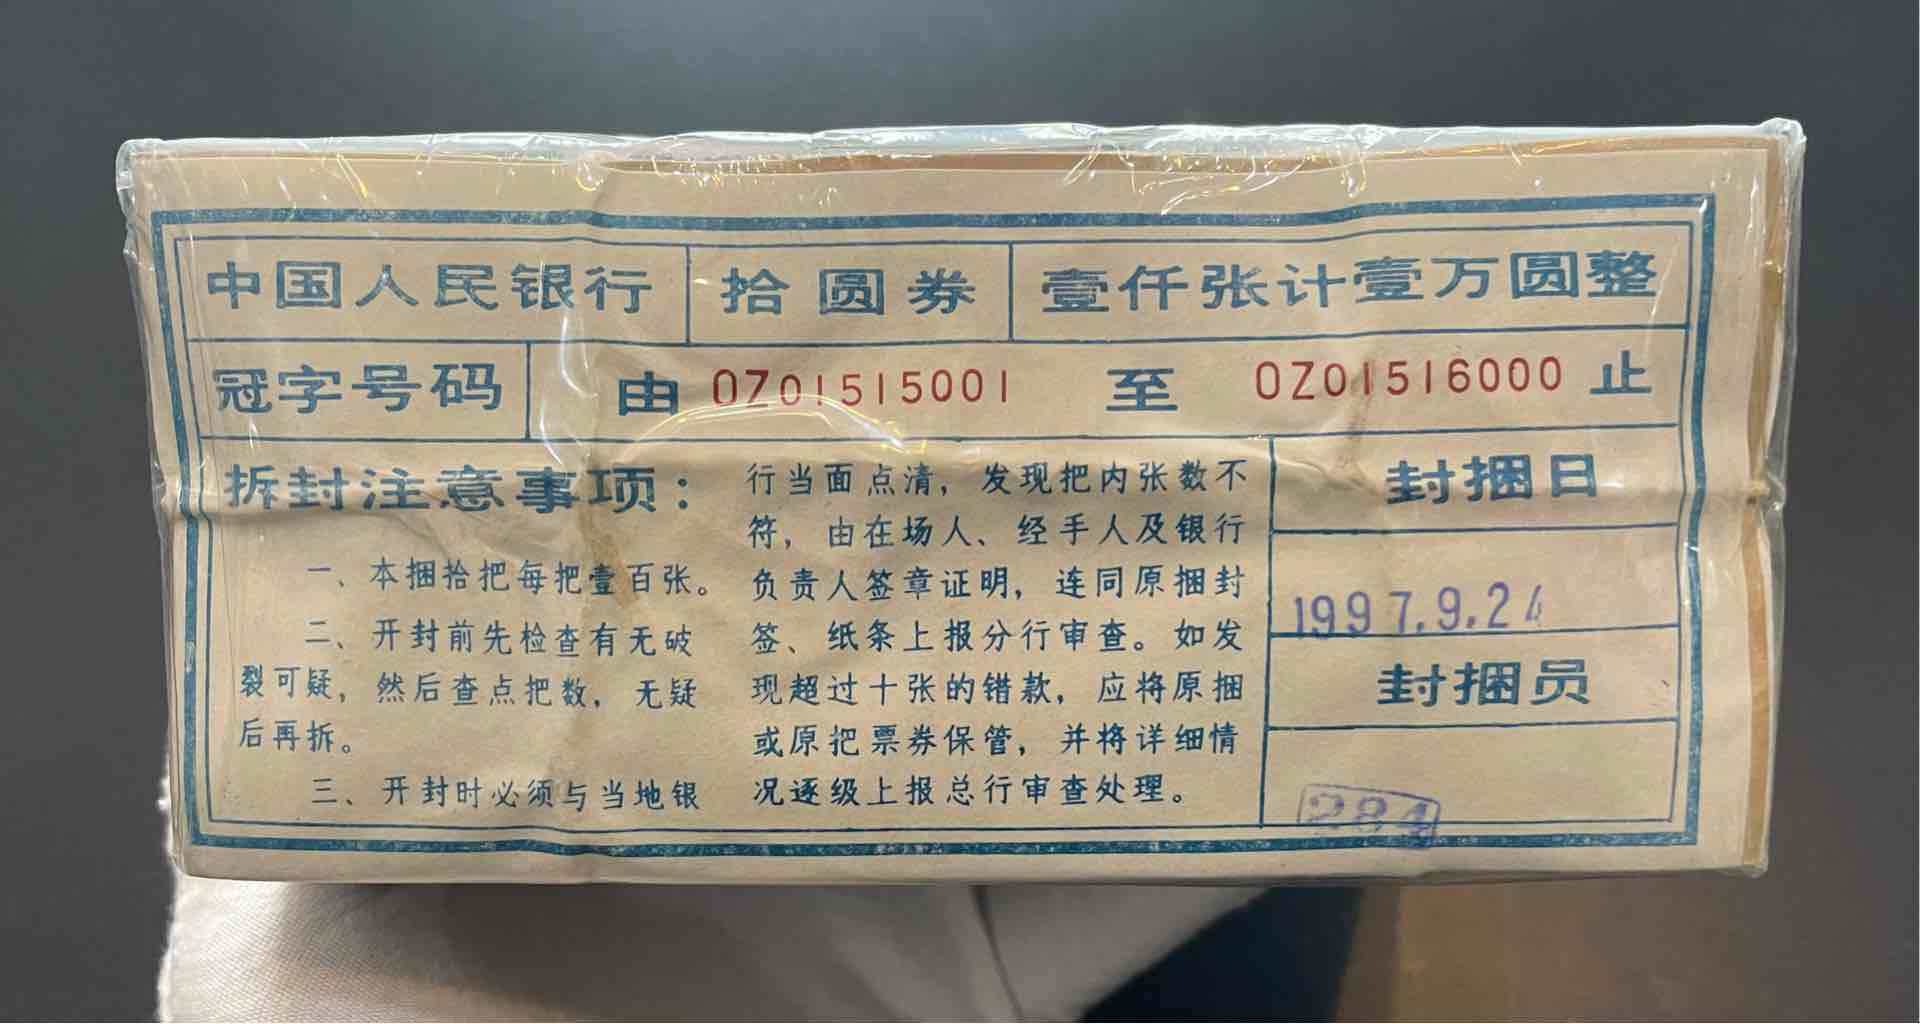 中国人民银行 拾圆券 壹仟张计壹万圆整
冠字号码 由 OZ01515001 至 OZ01516000 止
拆封注意事项：
一、本捆拾把每把壹百张。
二、开封前先检查有无破
裂可疑，然后查点把数，无疑
后再拆。
三、开封时必须与当地银
行当面点清，发现把内张数不
符，由在场人、经手人及银行
负责人签章证明，连同原捆封
签、纸条上报分行审查。如发
现超过十张的错款，应将原捆
或原把票券保管，并将详细情
况逐级上报总行审查处理。
封捆日
1997.9.24
封捆员
284